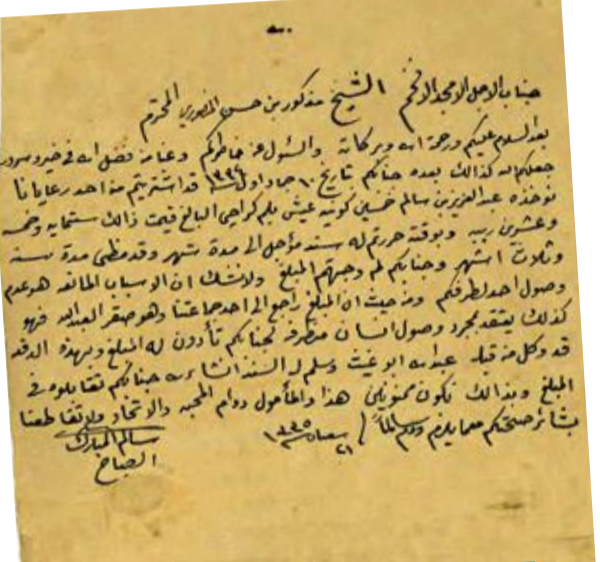 جناب الاجل الامجد الافخم الشيخ مذكور بن حسن المنصوري المحترم
بعد السلام عليكم ورحمة الله وبركاته والسئول عن خاطركم وعنا من فضل الله في خير وسرور
جعلكم الله كذالك بعده جنابكم تاريخ ١٠ جماد اول ١٣٣٤ قد اشتريتم من احد رعايانا
نوخذه عبدالعزيز بن سالم خمسين كونيه عيش بلم كراجي البالغ قيمت ذالك ستمايه وخمسه
وعشرين ربيه وبوقته حررتم له سند مؤجل الى مدة شهر وقد مظى مدة سنه
وثلاث اشهر وجنابكم لم وجهتم المبلغ ولا نشك ان الاسباب المانعه هو عدم
وصول احد لطرفكم ومن حيث ان المبلغ راجع الى احد جماعتنا وهو صقر العبدالله فهو
كذلك ينتقد بمجرد وصول انسان من طرفه لجنابكم تأدون له المبلغ وبهذه الدفعه
قد وكل من قبله عبدالله ابو غيث وسلم له السند انشاء الله جنابكم تقابلوه في
المبلغ وبذالك نكون ممنونين هذا والمأمول دوام المحبه والاتحاد ولا تقاطعنا
بشائر صحتكم مع ما يلزم ودم سالماً ٢١ شعبان ١٣٣٥
سالم المبارك
الصباح